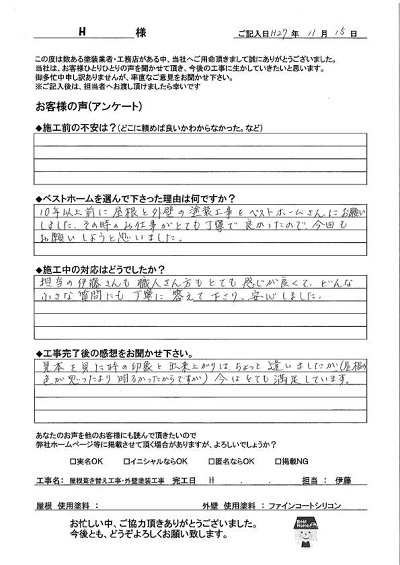 H 様
ご記入日 H27年 11月 15日
この度は数ある塗装業者・工務店がある中、当社へご用命頂きまして誠にありがとうございました。
当社は、お客様ひとりひとりの声を聞かせて頂き、今後の工事に生かしていきたいと思います。
御多忙中申し訳ありませんが、率直なご意見をお聞かせ下さい。
※ご記入後は、担当者へお渡し頂けましたら幸いです
お客様の声(アンケート)
◆施工前の不安は?(どこに頼めば良いかわからなかった。など)
◆ベストホームを選んで下さった理由は何ですか?
10年以上前に屋根と外壁の塗装工事をベストホームさんにお願い
しました。その時のお仕事がとても丁寧で良かったので、今回も
お願いしようと思いました。
◆施工中の対応はどうでしたか?
担当の伊藤さんも職人さん方もとても感じが良くて、どんな
小さな質問にも丁寧に答えて下さり、安心しました。
◆工事完了後の感想をお聞かせ下さい。
見本を見た時の印象と出来上がりは、ちょっと違いましたが(屋根の
色が思ったより明るかったからですが)今はとても満足しています。
あなたのお声を他のお客様にも読んで頂きたいので
弊社ホームページ等に掲載させて頂く場合がありますが、よろしいでしょうか?
□実名OK □イニシャルならOK □匿名ならOK □掲載NG
工事名: 屋根葺き替え工事・外壁塗装工事 完工日 H . . 担当: 伊藤
屋根 使用塗料: 外壁 使用塗料: ファインコートシリコン
お忙しい中、ご協力頂きありがとうございました。
今後とも、どうぞよろしくお願い致します。
Best Home